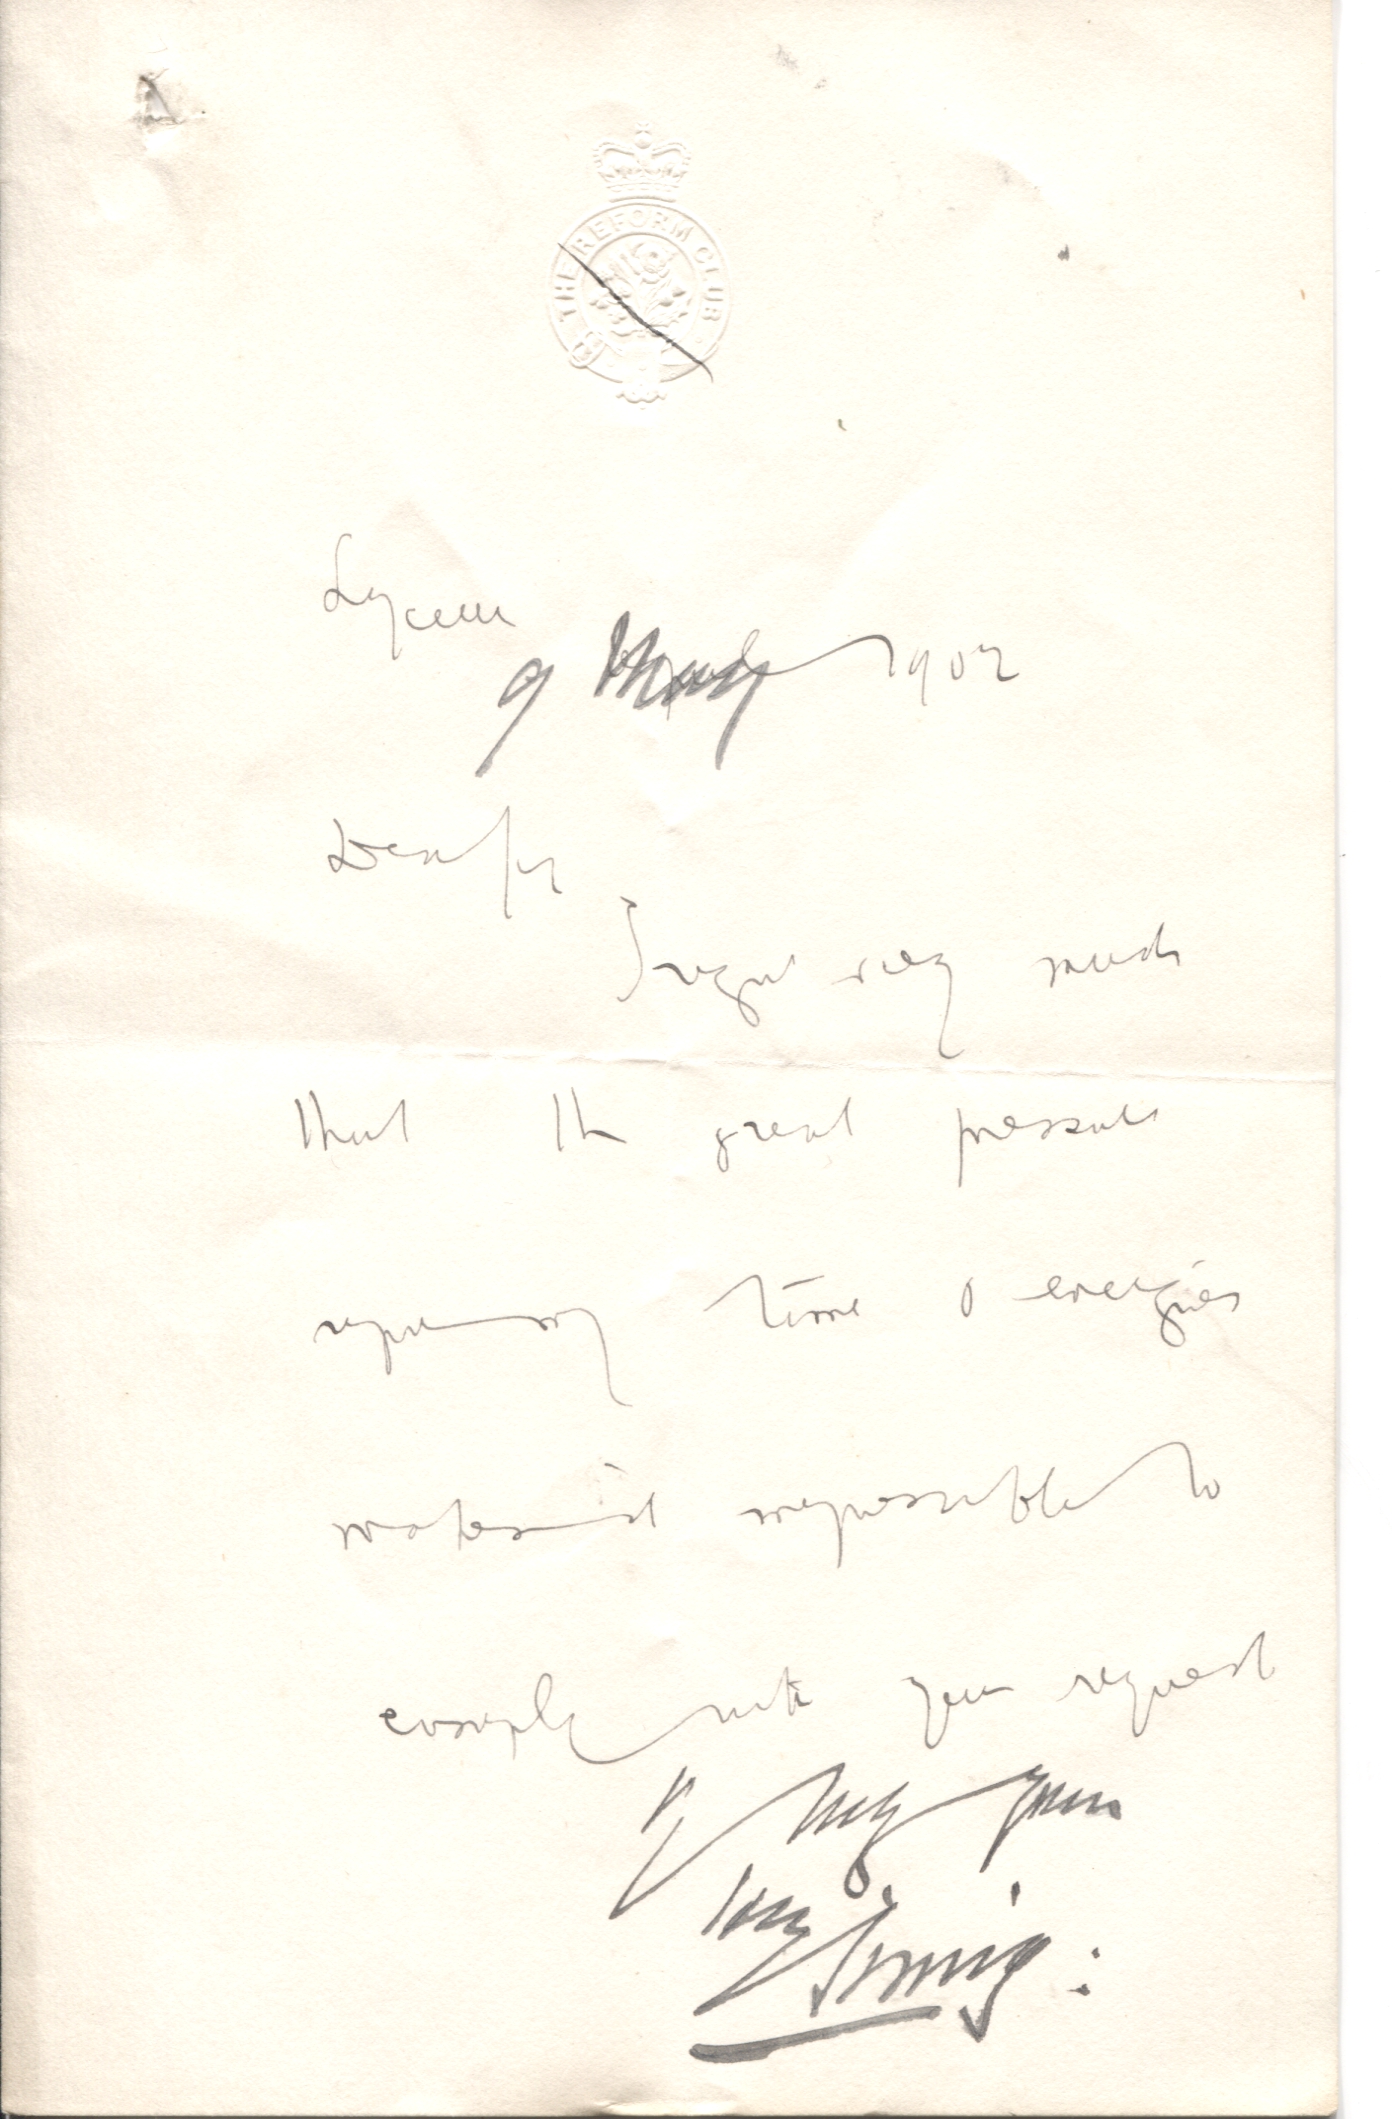 THE REFORM CLUB
Lyceum
9 May 1902
Dear Sir
I regret very much
that the great pressure
upon my time & energies
makes it impossible to
comply with your request
Vy truly yours
Henry Irving